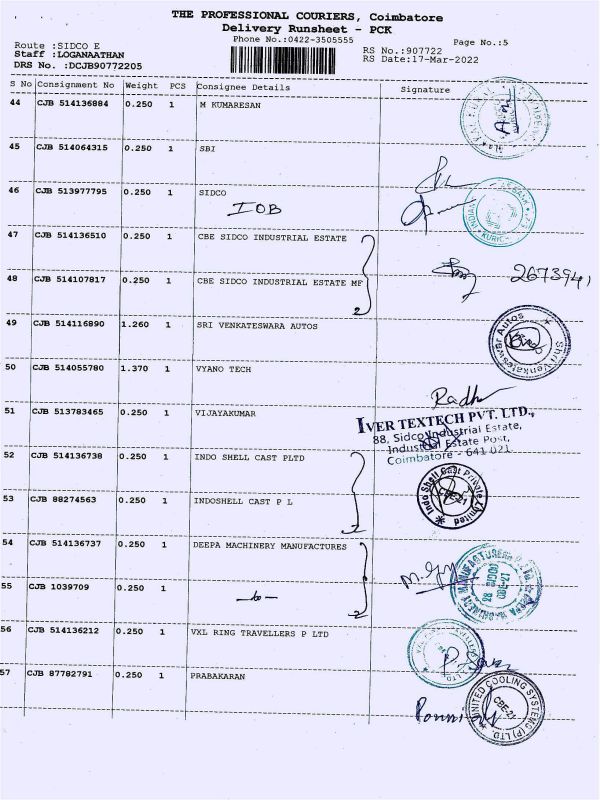 THE PROFESSIONAL COURIERS, Coimbatore
Delivery Runsheet - PCK
Phone No.:0422-3505555
Page No.:5
Route :SIDCO E
Staff :LOGANAATHAN
DRS No. :DCJB90772205
RS No.:907722
RS Date:17-Mar-2022
S No Consignment No Weight PCS Consignee Details Signature
44 CJB 514136884 0.250 1 M KUMARESAN
45 CJB 514064315 0.250 1 SBI
46 CJB 513977795 0.250 1 SIDCO
IOB
47 CJB 514136510 0.250 1 CBE SIDCO INDUSTRIAL ESTATE
2673941
48 CJB 514107817 0.250 1 CBE SIDCO INDUSTRIAL ESTATE MF
2
49 CJB 514116890 1.260 1 SRI VENKATESWARA AUTOS
Shri Venkateswar Autos
50 CJB 514055780 1.370 1 VYANO TECH
Radh
51 CJB 513783465 0.250 1 VIJAYAKUMAR
IVER TEXTECH PVT. LTD.,
88, Sidco Industrial Estate,
Industrial Estate Post,
Coimbatore - 641 021
52 CJB 514136738 0.250 1 INDO SHELL CAST PLTD
Indo Shell Cast Private Limited
CBE-21
53 CJB 88274563 0.250 1 INDOSHELL CAST P L
54 CJB 514136737 0.250 1 DEEPA MACHINERY MANUFACTURES
2
55 CJB 1039709 0.250 1
56 CJB 514136212 0.250 1 VXL RING TRAVELLERS P LTD
57 CJB 87782791 0.250 1 PRABAKARAN
UNITED COOLING SYSTEMS (P) LTD.
CBE-21